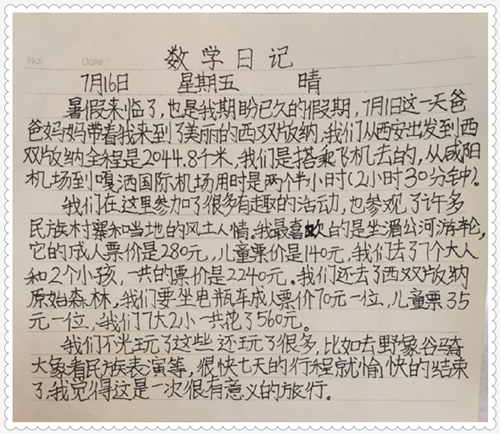 No: Date:
数学日记
7月16日 星期五 晴
暑假来临了,也是我期盼已久的假期,7月1日这一天爸
爸妈妈带着我来到了美丽的西双版纳,我们从西安出发到西
双版纳全程是2044.8千米,我们是搭乘飞机去的,从咸阳
机场到嘎洒国际机场用时是两个半小时(2小时30分钟)。
我们在这里参加了很多有趣的活动,也参观了许多
民族村寨和当地的风土人情,我最喜欢的是坐湄公河游轮,
它的成人票价是280元,儿童票价是140元,我们去了7个大人
和2个小孩,一共的票价是2240元。我们还去了西双版纳
原始森林,我们要坐电瓶车成人票价70元一位,儿童票35
元一位,我们7大2小一共花了560元。
我们不光玩了这些还玩了很多,比如去野象谷骑
大象看民族表演等,很快七天的行程就愉快的结束
了,我觉得这是一次很有意义的旅行。